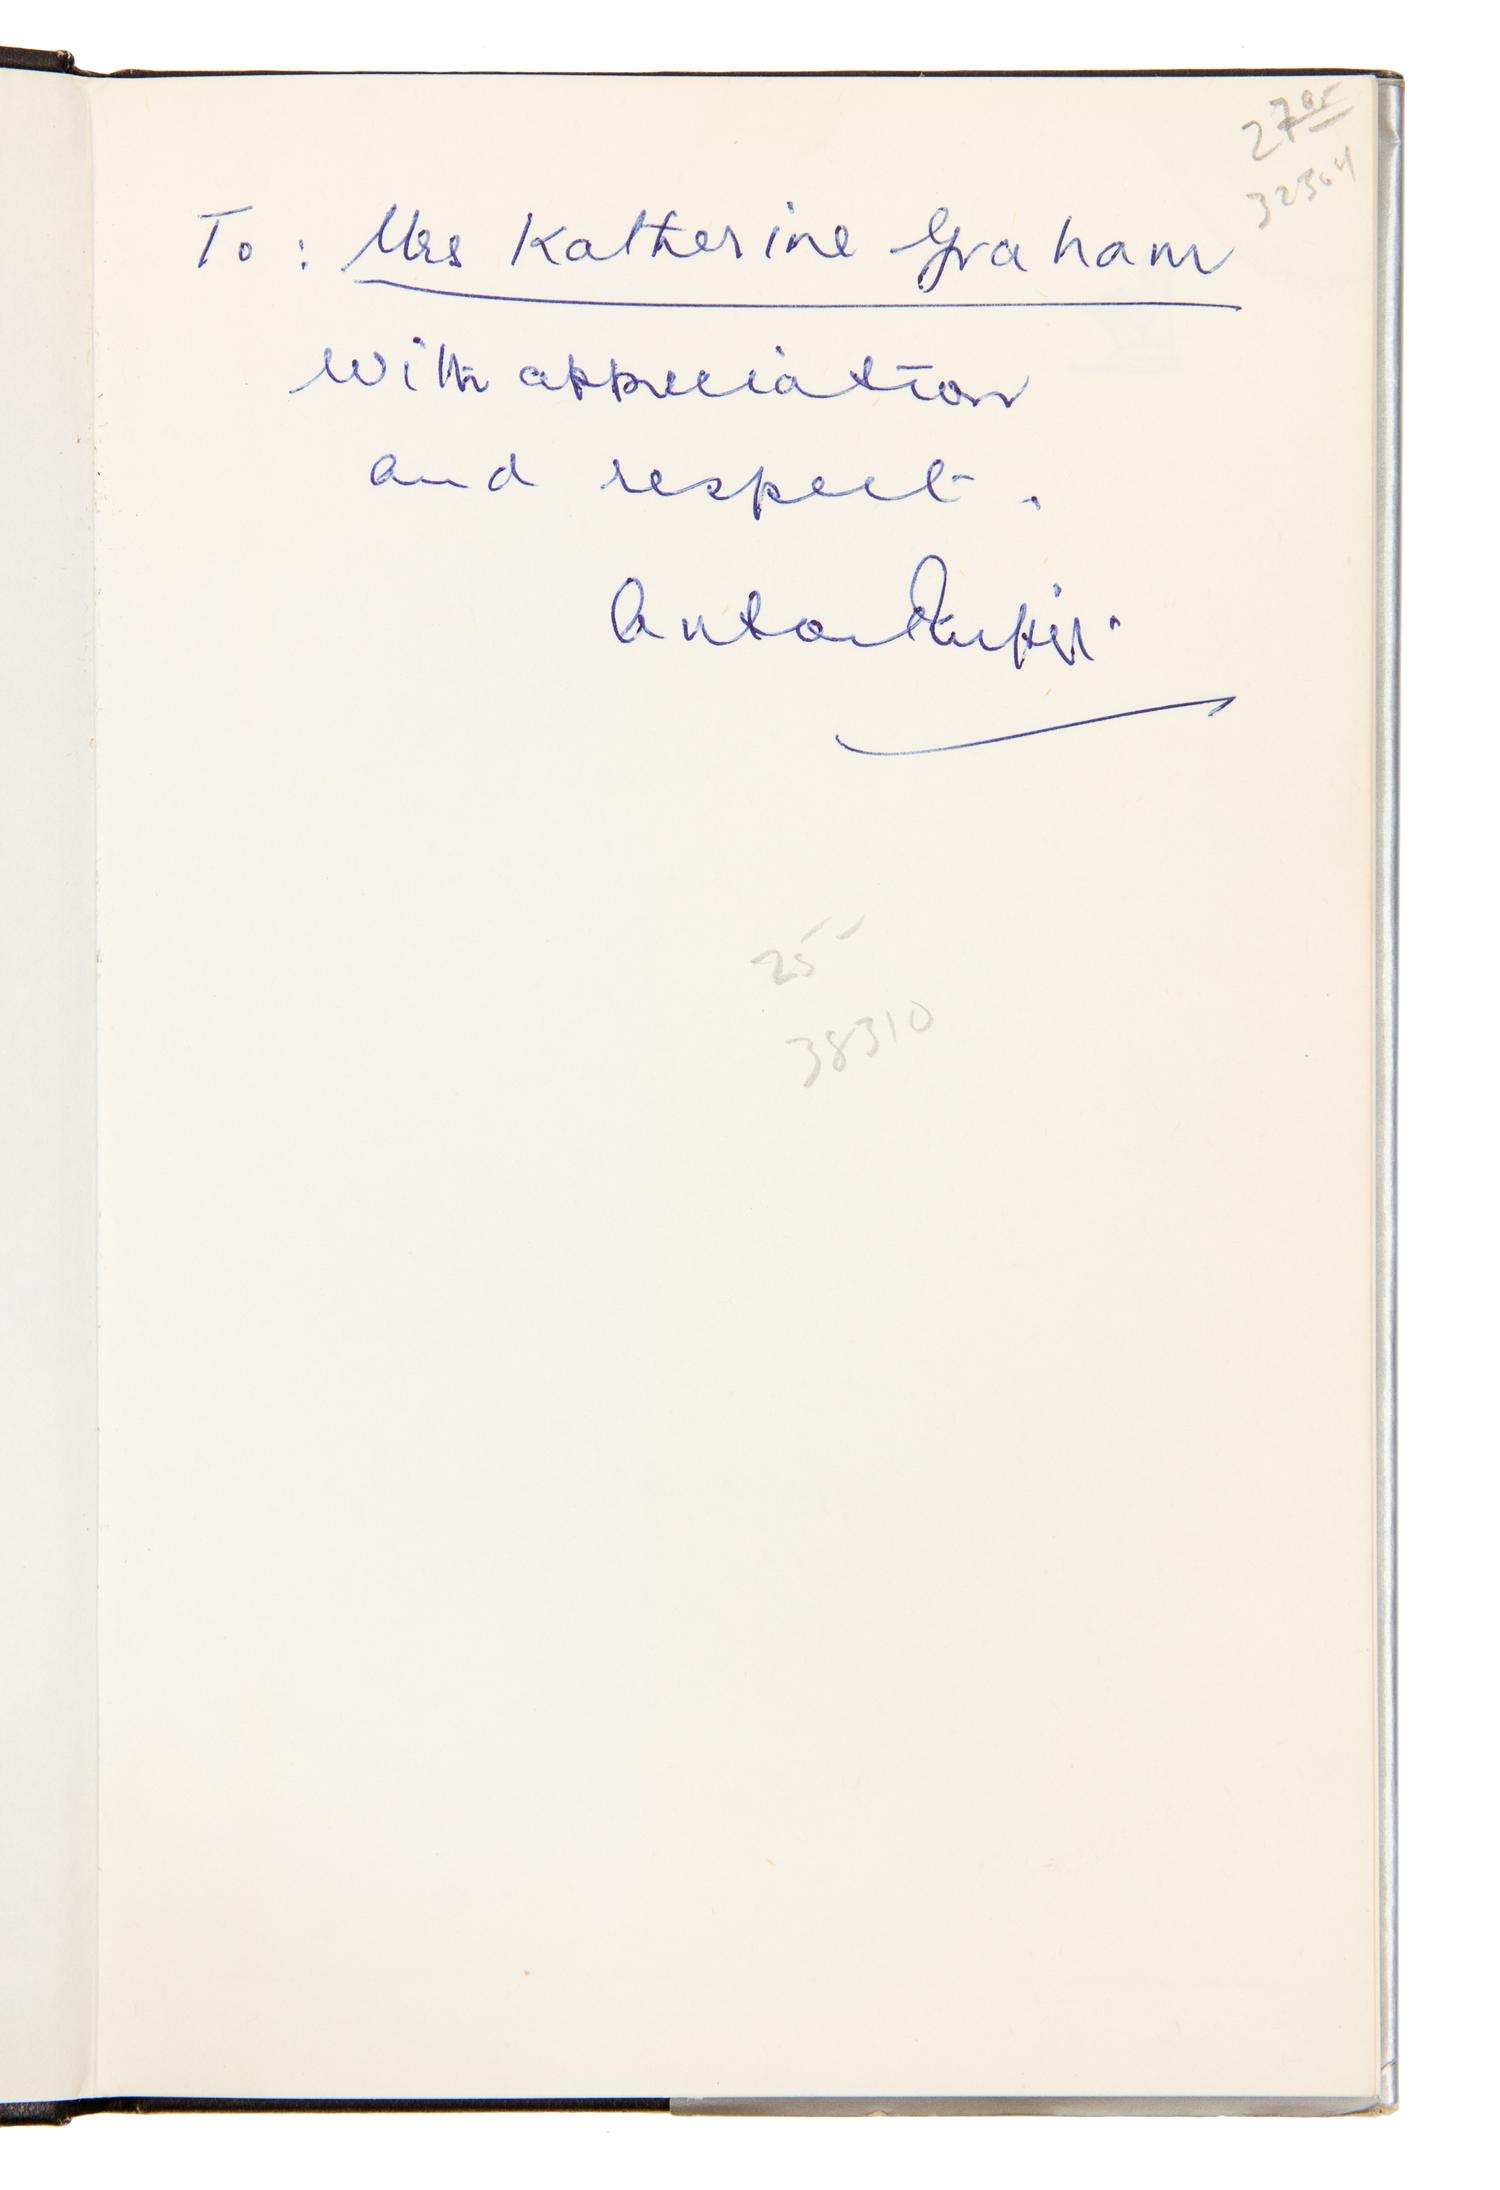 27
32364
To: Mrs Katherine Graham
with appreciation
and respect.
Anton
25
38310